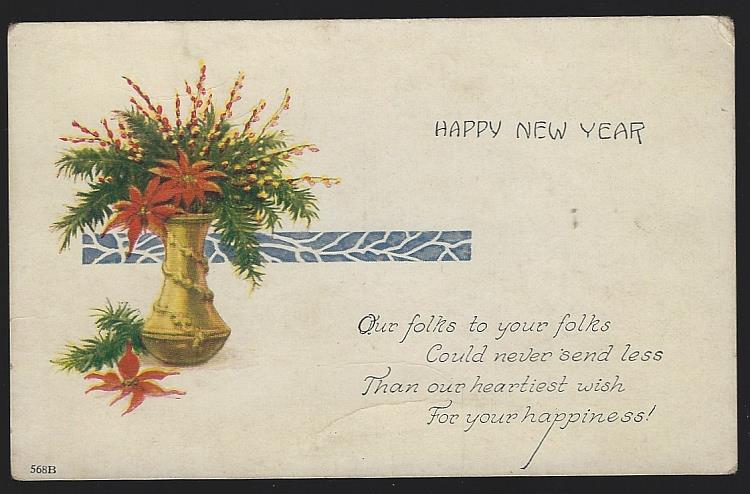 HAPPY NEW YEAR
Our folks to your folks
Could never send less
Than our heartiest wish
For your happiness!
568B